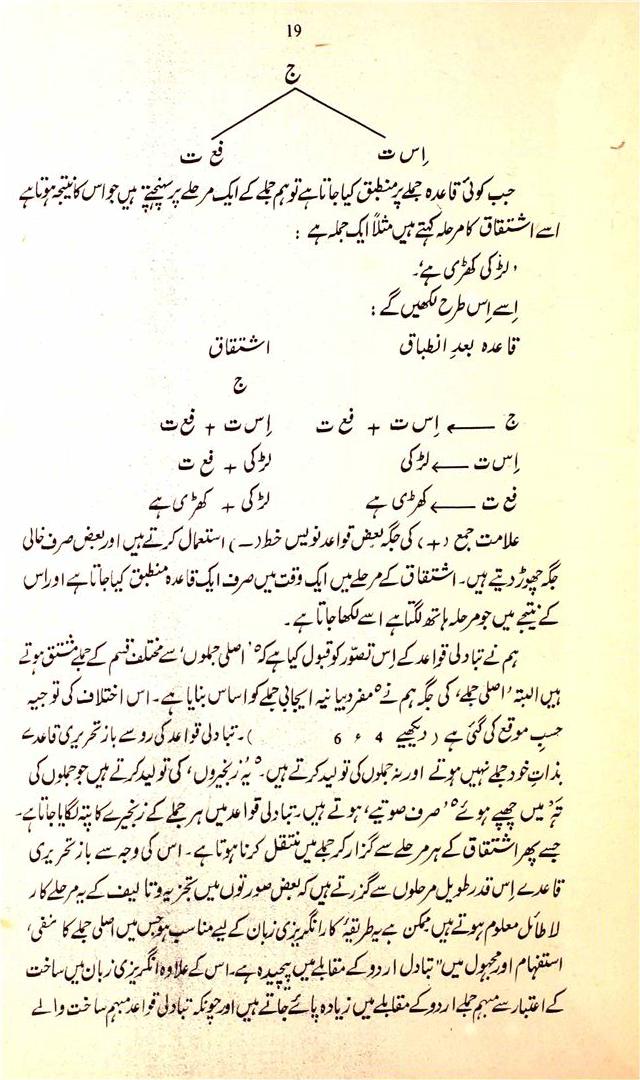 19
ج
اِس ت فع ت
جب کوئی قاعدہ جملے پر منطبق کیا جاتا ہے تو ہم جملے کے ایک مرحلے پر پہنچتے ہیں جو اس کا نتیجہ ہوتا ہے
اسے اشتقاق کا مرحلہ کہتے ہیں مثلاً ایک جملہ ہے :
'لڑکی کھڑی ہے'۔
اِسے اِس طرح لکھیں گے :
قاعدہ بعدِ انطباق اشتقاق
ج
ج ← اِس ت + فع ت اِس ت + فع ت
اِس ت ← لڑکی لڑکی + فع ت
فع ت ← کھڑی ہے لڑکی + کھڑی ہے
علامت جمع (+) کی جگہ بعض قواعد نویس خط (-) استعمال کرتے ہیں اور بعض صرف خالی
جگہ چھوڑ دیتے ہیں۔ اشتقاق کے مرحلے میں ایک وقت میں صرف ایک قاعدہ منطبق کیا جاتا ہے اور اس
کے نتیجے میں جو مرحلہ ہاتھ لگتا ہے اسے لکھا جاتا ہے۔
ہم نے تبادلی قواعد کے اِس تصوّر کو قبول کیا ہے کہ 'اصلی جملوں' سے مختلف قسم کے جملے مشتق ہوتے
ہیں البتہ 'اصلی جملے' کی جگہ ہم نے 'مفرد بیانیہ ایجابی جملے کو اساس بنایا ہے۔ اس اختلاف کی توجیہ
حسبِ موقع کی گئی ہے (دیکھیے 4 ء 6 )۔ تبادلی قواعد کی رو سے باز تحریری قاعدے
بذاتِ خود جملے نہیں ہوتے اور نہ جملوں کی تولید کرتے ہیں۔ یہ 'زنجیروں' کی تولید کرتے ہیں جو جملوں کی
'تہ' میں چھپے ہوئے 'صرف صوتیے' ہوتے ہیں۔ تبادلی قواعد میں ہر جملے کے زنجیرے کا پتہ لگایا جاتا ہے۔
جسے پھر اشتقاق کے ہر مرحلے سے گزار کر جملے میں منتقل کرنا ہوتا ہے۔ اس کی وجہ سے باز تحریری
قاعدے اِس قدر طویل مرحلوں سے گزرتے ہیں کہ بعض صورتوں میں تجزیہ و تالیف کے یہ مرحلے کار
لاطائل معلوم ہوتے ہیں ممکن ہے یہ طریقۂ کار انگریزی زبان کے لیے مناسب ہو جس میں اصلی جملے کا منفی،
استفہام اور مجہول میں" تبادل اردو کے مقابلے میں پیچیدہ ہے۔ اس کے علاوہ انگریزی زبان میں ساخت
کے اعتبار سے مبہم جملے اردو کے مقابلے میں زیادہ پائے جاتے ہیں اور چونکہ تبادلی قواعد مبہم ساخت والے